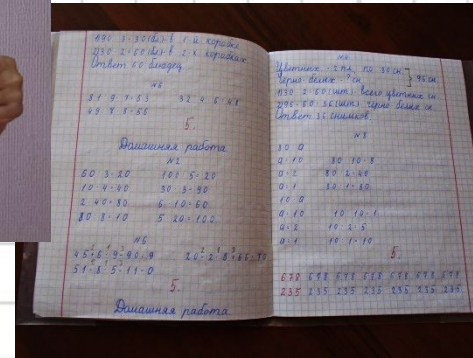 1) 90 : 3 = 30 (бл) в 1 й коробке
2) 30 · 2 = 60 (бл) в 2 х коробках
Ответ 60 блюдец
№5
81 : 9 · 7 = 63 32 : 4 · 6 = 48
49 : 7 · 8 = 56
5.
Домашняя работа
№2
60 : 3 = 20 100 : 5 = 20
10 · 4 = 40 30 · 3 = 90
2 · 40 = 80 6 · 10 = 60
80 : 8 = 10 5 · 20 = 100
№6
5.
Домашняя работа
Цветных - 2 пл. по 30 сн
Черно-белых - ? сн 96 сн.
1) 30 · 2 = 60 (шт) всего цветных сн
2) 96 - 60 = 36 (шт) черно белых сн
Ответ 36 снимков.
№8
80 : а
а = 10 80 : 10 = 8
а = 2 80 : 2 = 40
а = 1 80 : 1 = 80
10 : а
а = 10 10 : 10 = 1
а = 2 10 : 2 = 5
а = 1 10 : 1 = 10
5.
678 678 678 678 678 678 678
235 235 235 235 235 235 235